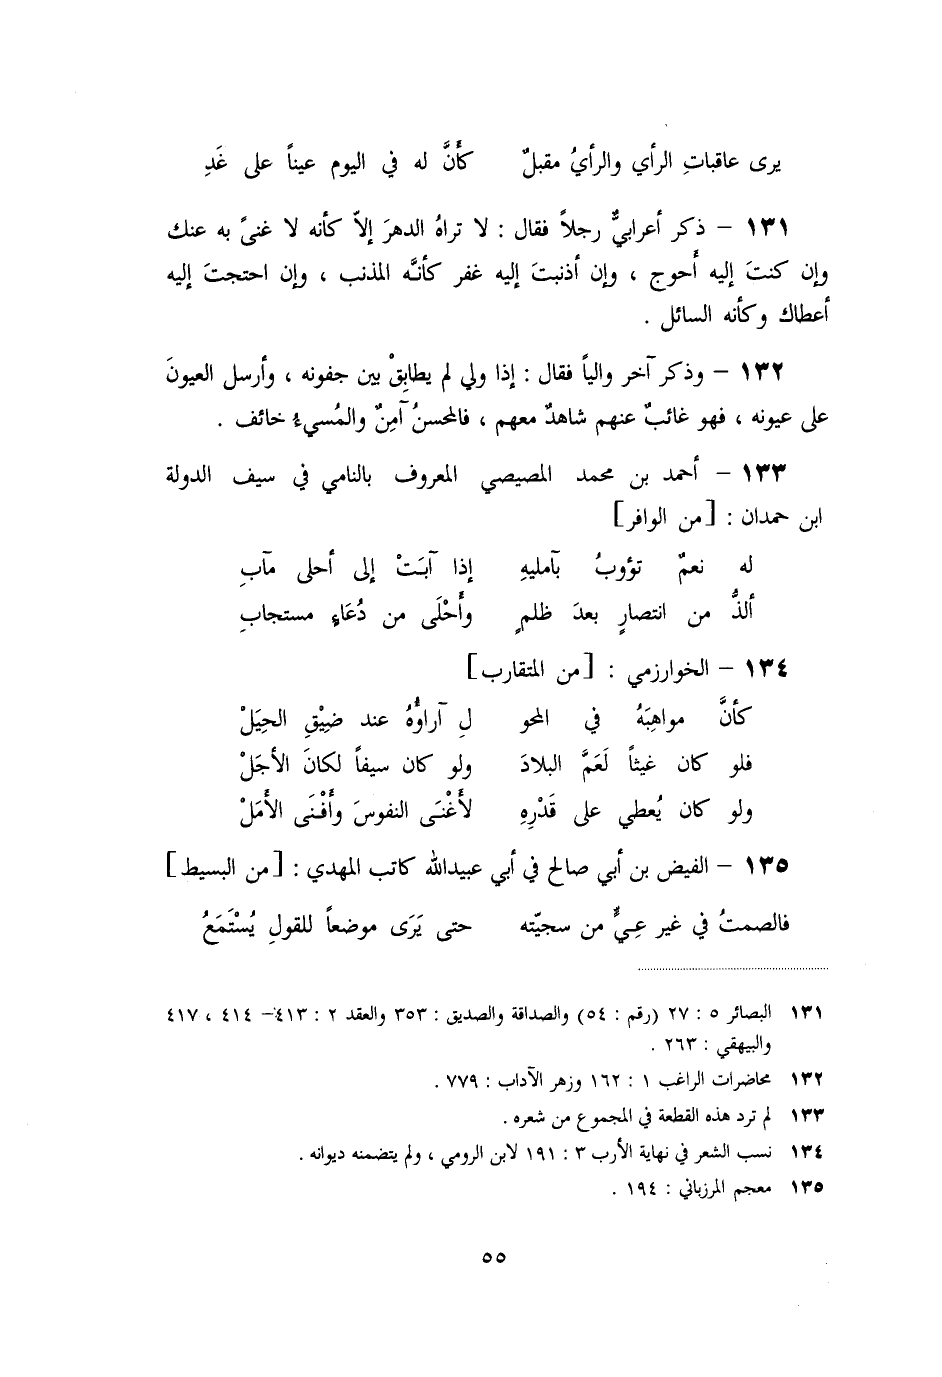 يرى عاقباتِ الرأي والرأيُ مقبلٌ كأَنَّ له في اليوم عيناً على غَدِ
١٣١ – ذكر أعرابيٌّ رجلاً فقال : لا تراهُ الدهرَ إلاّ كأنه لا غنىً به عنك
وإن كنتَ إليه أَحوج ، وإن أذنبتَ إليه غفر كأنّه المذنب ، وإن احتجتَ إليه
أعطاك وكأنه السائل .
١٣٢ – وذكر آخر والياً فقال : إذا ولي لم يطابِقْ بين جفونه ، وأرسل العيونَ
على عيونه ، فهو غائبٌ عنهم شاهدٌ معهم ، فالمحسنُ آمِنٌ والمُسيءُ خائف .
١٣٣ – أحمد بن محمد المصيصي المعروف بالنامي في سيف الدولة
ابن حمدان : [من الوافر]
له نعمٌ تؤوبُ بآمليهِ إذا آبَتْ إلى أحلى مآبِ
ألذُّ من انتصارٍ بعدَ ظلمٍ وأَحْلَى من دُعَاءٍ مستجابِ
١٣٤ – الخوارزمي : [من المتقارب]
كأنَّ مواهِبَهُ في المحو لِ آراؤُهُ عند ضِيْقِ الحِيَلْ
فلو كان غيثاً لَعَمَّ البلادَ ولو كان سيفاً لكانَ الأجَلْ
ولو كان يُعطي على قَدْرِهِ لأَغْنَى النفوسَ وأَفْنَى الأَمَلْ
١٣٥ – الفيض بن أبي صالح في أبي عبيدالله كاتب المهدي : [من البسيط]
فالصمتُ في غير عِيٍّ من سجيّته حتى يَرَى موضعاً للقولِ يُسْتَمَعُ
١٣١ البصائر ٥ : ٢٧ (رقم : ٥٤) والصداقة والصديق : ٣٥٣ والعقد ٢ : ٤١٣– ٤١٤ ، ٤١٧
والبيهقي : ٢٦٣ .
١٣٢ محاضرات الراغب ١ : ١٦٢ وزهر الآداب : ٧٧٩ .
١٣٣ لم ترد هذه القطعة في المجموع من شعره .
١٣٤ نسب الشعر في نهاية الأرب ٣ : ١٩١ لابن الرومي ، ولم يتضمنه ديوانه .
١٣٥ معجم المرزباني : ١٩٤ .
٥٥